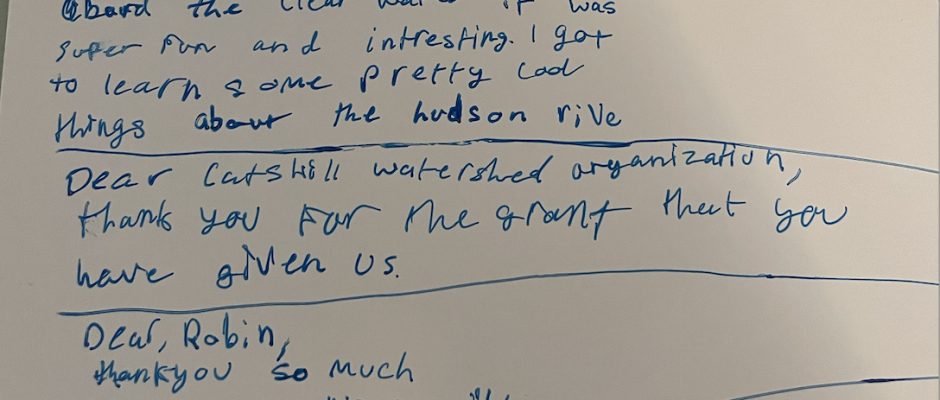 aboard the clear wat it was
super fun and intresting. I got
to learn some pretty cool
things about the hudson rive
Dear Catskill watershed organization,
thank you for the grant that you
have given us.
Dear, Robin,
thankyou so much